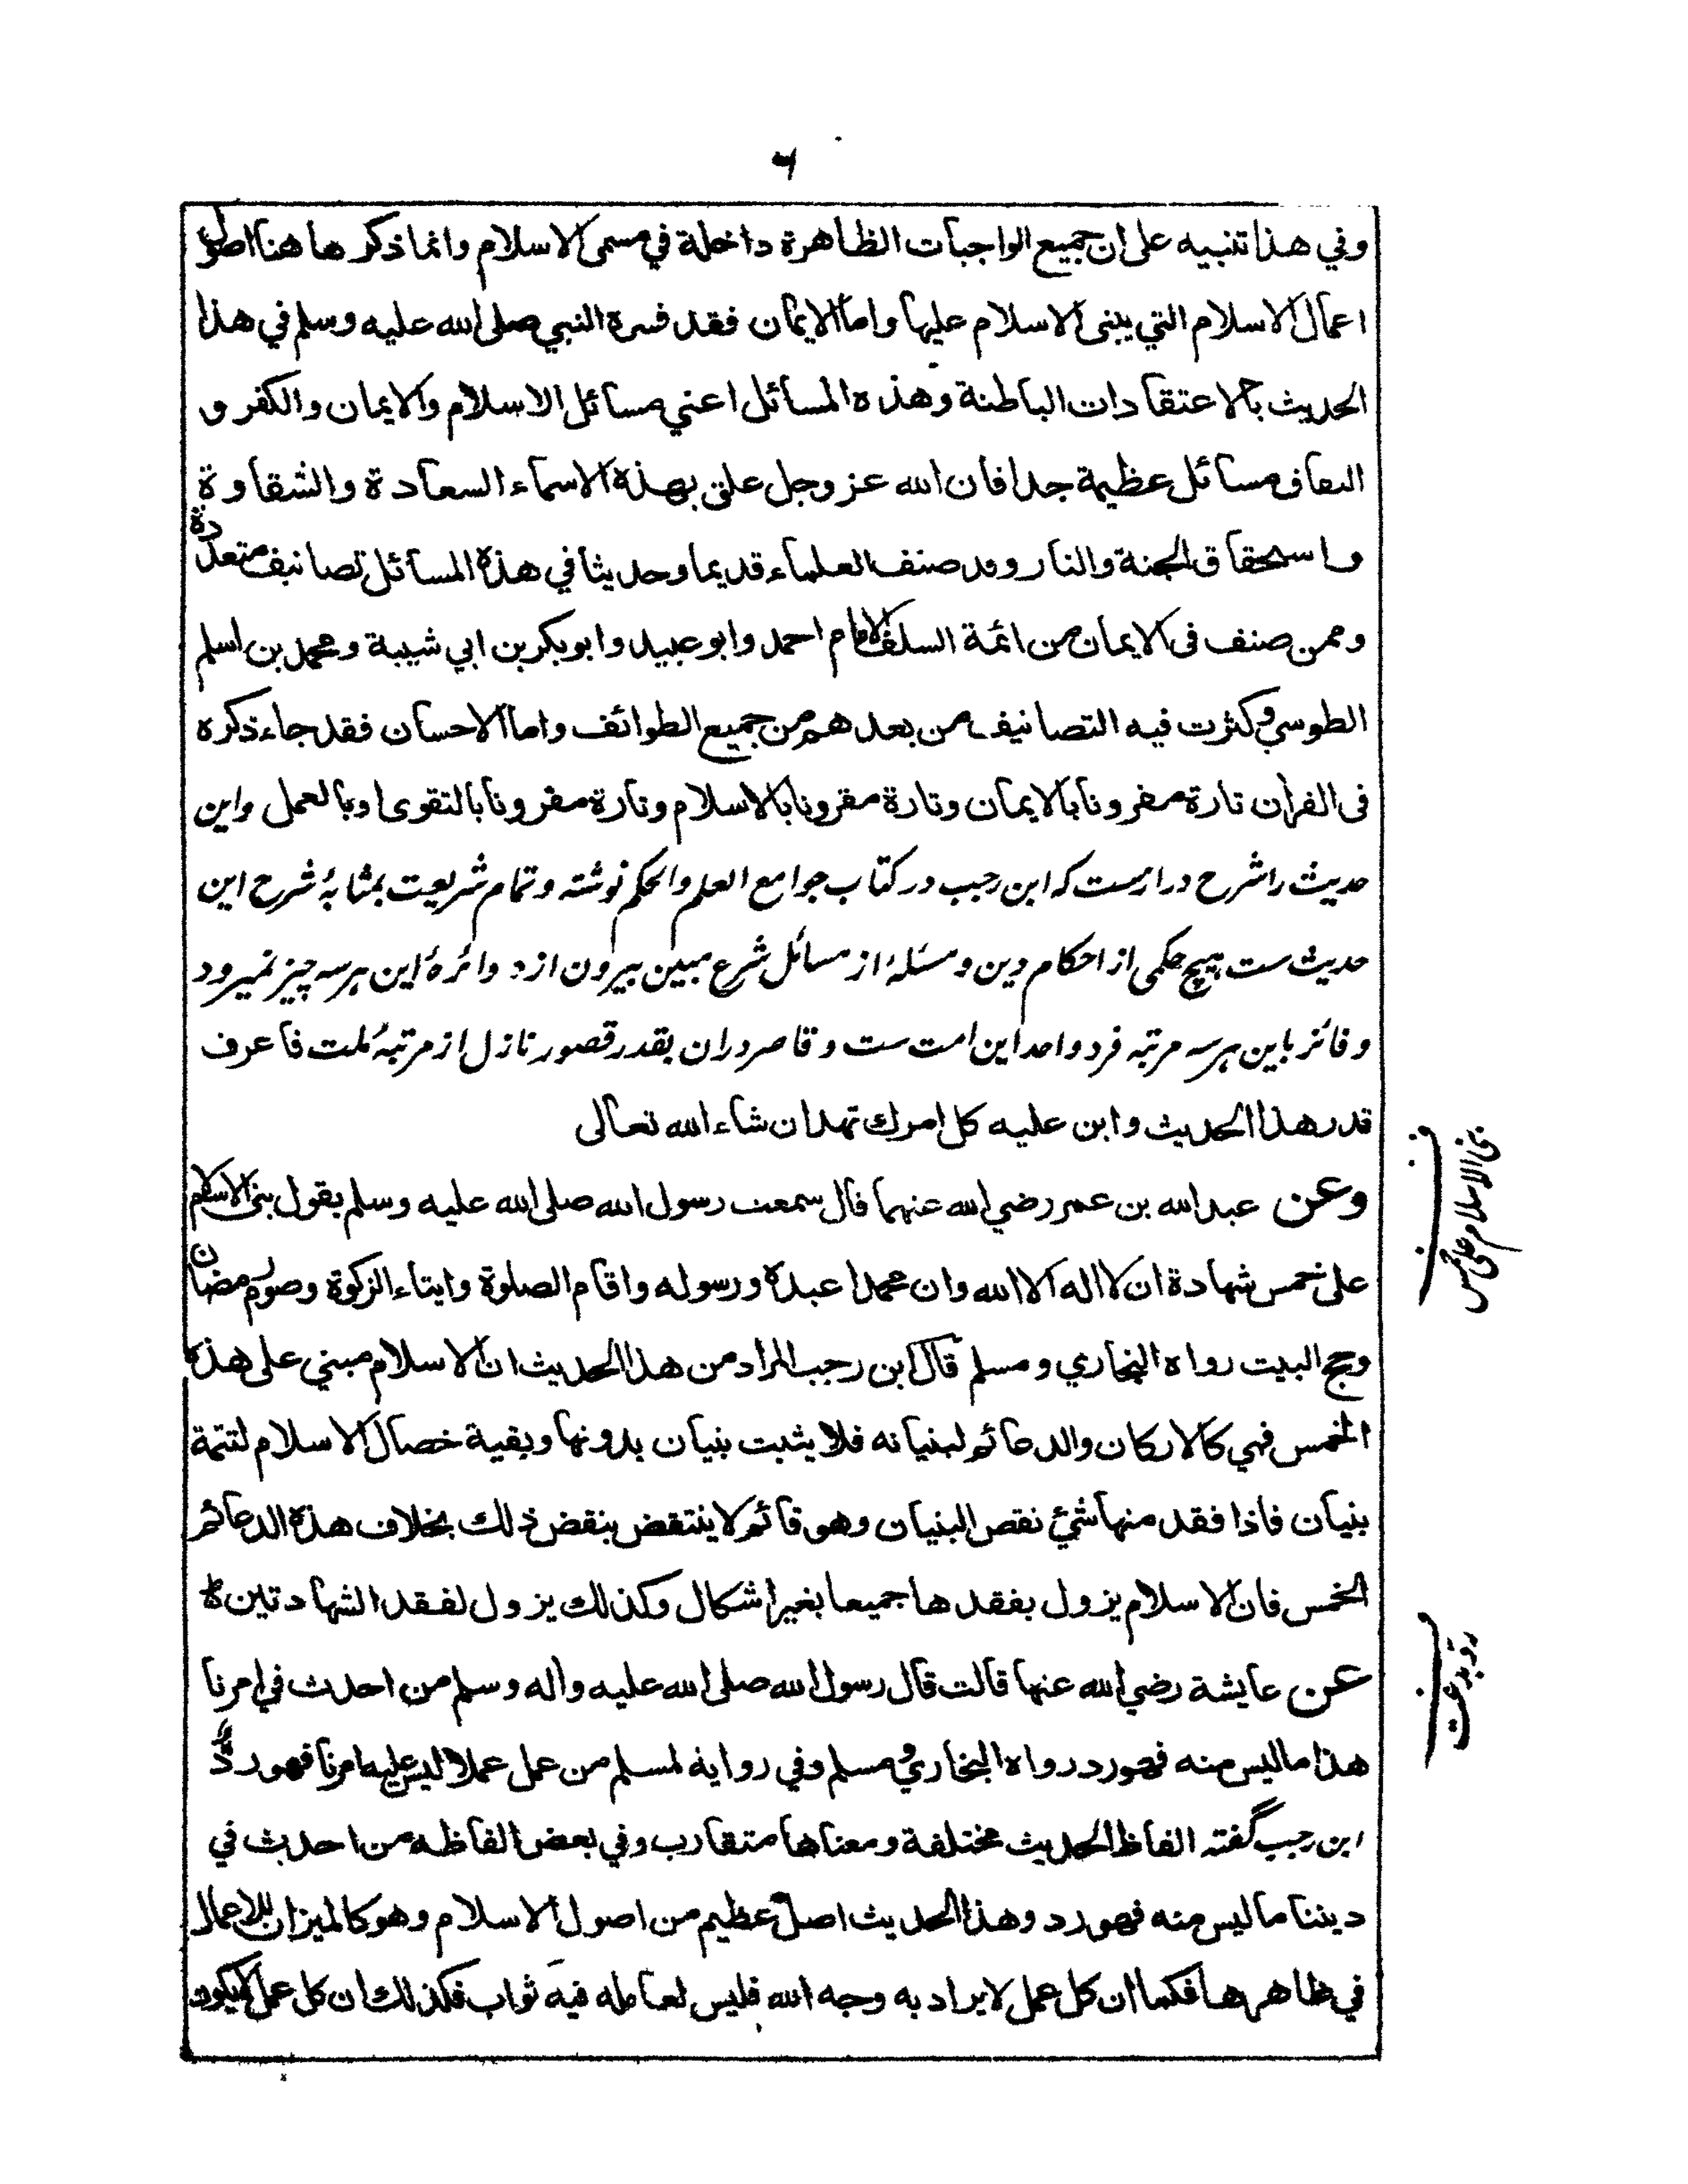 ۶
وفي هذا تنبيه على ان جميع الواجبات الظاهرة داخلة في مسمى الاسلام وانما ذكر ها هنا اصول
اعمال الاسلام التي يبنى الاسلام عليها واما الايمان فقد فسره النبي صلى الله عليه وسلم في هذا
الحديث بالاعتقادات الباطنة وهذه المسائل اعني مسائل الاسلام والايمان والكفر و
النفاق مسائل عظيمة جدا فان الله عز وجل علق بهذه الاسماء السعادة والشقاوة
واستحقاق الجنة والنار وقد صنف العلماء قديما وحديثا في هذه المسائل تصانيف متعددة
وممن صنف في الايمان من ائمة السلف الامام احمد وابو عبيد وابوبكر بن ابي شيبة ومحمد بن اسلم
الطوسي وكثرت فيه التصانيف من بعدهم من جميع الطوائف واما الاحسان فقد جاء ذكره
فى القران تارة مقرونا بالايمان وتارة مقرونا بالاسلام وتارة مقرونا بالتقوى او بالعمل واین
حدیث را شرح درازست که ابن رجب در کتاب جوامع العلم والحکم نوشته و تمام شریعت بمثابۀ شرح این
حدیث ست هیچ حکمی از احکام دین و مسئلۀ از مسائل شرع مبین بیرون از دائرۀ این هرسه چیز نمیرود
و فائز باین هرسه مرتبه فرد واحد این امت ست و قاصر دران بقدر قصور نازل از مرتبۀ ملت فاعرف
قدر هذا الحديث وابن عليه كل امرك تهد ان شاء الله تعالى
وعن عبد الله بن عمر رضي الله عنهما قال سمعت رسول الله صلى الله عليه وسلم يقول بنى الاسلام
على خمس شهادة ان لا اله الا الله وان محمدا عبده ورسوله واقام الصلوة وايتاء الزكوة وصوم رمضان
وحج البيت رواه البخاري ومسلم قال ابن رجب المراد من هذا الحديث ان الاسلام مبني على هذه
الخمس فهي كالاركان والدعائم لبنيانه فلا يثبت بنيان بدونها وبقية خصال الاسلام لتتمة
بنيان فاذا فقد منها شئ نقص البنيان وهو قائم لا ينتقض بنقض ذلك بخلاف هذه الدعائم
الخمس فان الاسلام يزول بفقدها جميعا بغير اشكال وكذلك يزول لفقد الشهادتين ه
عن عايشة رضي الله عنها قالت قال رسول الله صلى الله عليه واله وسلم من احدث في امرنا
هذا ما ليس منه فهو رد رواه البخاري ومسلم وفي رواية لمسلم من عمل عملا ليس عليه امرنا فهو رد
ابن رجب گفته الفاظ الحديث مختلفة ومعناها متقارب وفي بعض الفاظه من احدث في
ديننا ما ليس منه فهو رد وهذا الحديث اصل عظيم من اصول الاسلام وهو كالميزان للاعمال
في ظاهرها فكما ان كل عمل لا يراد به وجه الله فليس لعامله فيه ثواب فكذلك ان كل عمل لايكون
ف بنى الاسلام على خمس
ف رد بدعت